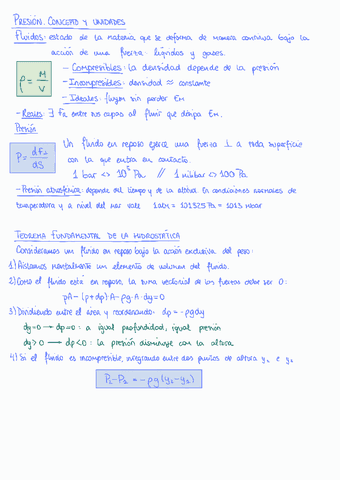 PRESIÓN. CONCEPTO Y UNIDADES
Fluidos: estado de la materia que se deforma de manera continua bajo la
acción de una fuerza: líquidos y gases.
ρ = M/V
- Compresibles: la densidad depende de la presión
- Incompresibles: densidad ≈ constante
- Ideales: fluyen sin perder Em
- Reales: ∃ Fr entre sus capas al fluir que disipa Em.
Presión
P = dF⊥/dS
Un fluido en reposo ejerce una fuerza ⊥ a toda superficie
con la que entra en contacto.
1 bar <> 10⁵ Pa // 1 mbar <> 100 Pa
- Presión atmosférica: depende del tiempo y de la altura. En condiciones normales de
temperatura y a nivel del mar vale 1 atm = 101325 Pa = 1013 mbar
TEOREMA FUNDAMENTAL DE LA HIDROSTÁTICA
Consideramos un fluido en reposo bajo la acción exclusiva del peso:
1) Aislamos mentalmente un elemento de volumen del fluido.
2) Como el fluido está en reposo, la suma vectorial de las fuerzas debe ser 0:
pA - (p+dp)·A - ρg·A·dy = 0
3) Dividiendo entre el área y reordenando: dp = -ρgdy
dy=0 → dp=0 : a igual profundidad, igual presión
dy>0 → dp<0 : la presión disminuye con la altura.
4) Si el fluido es incompresible, integrando entre dos puntos de altura y₁ e y₂
P₂-P₁ = -ρg(y₂-y₁)